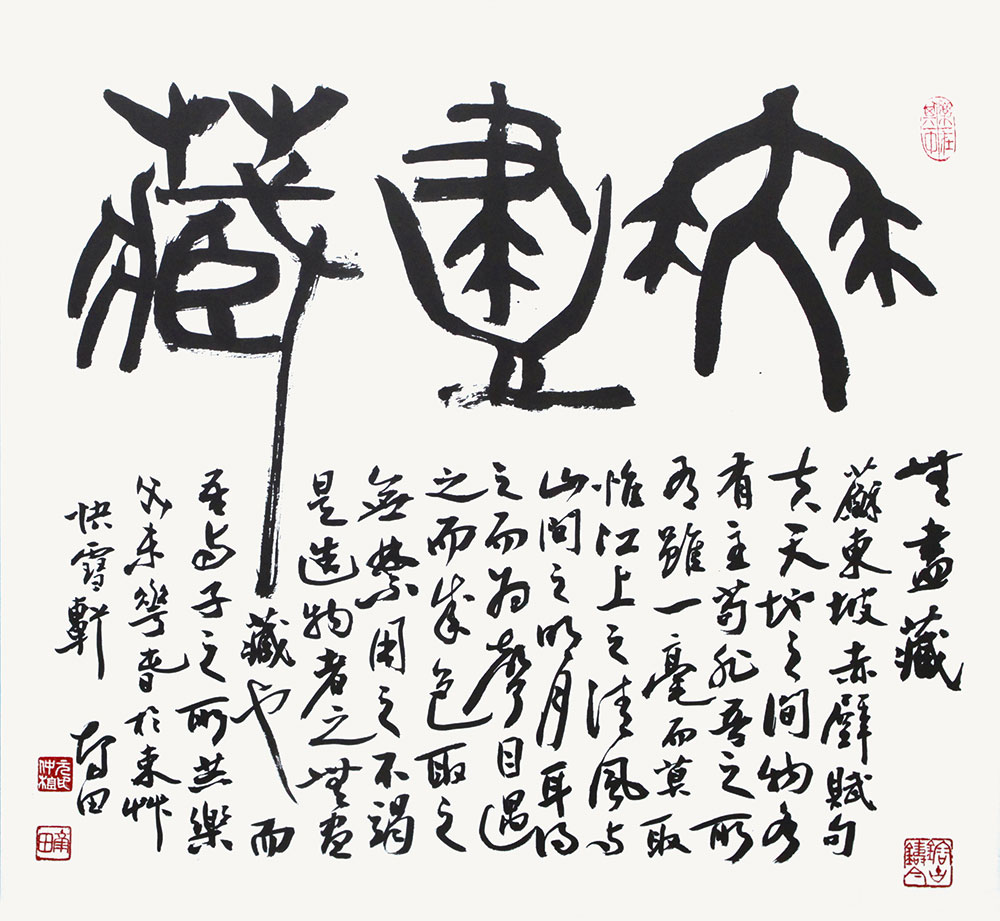 無盡藏
無盡藏
蘇東坡赤壁賦句
夫天地之間物各
有主苟非吾之所
有雖一毫而莫取
惟江上之清風与
山間之明月耳得
之而为聲目遇
之而成色取之
無禁用之不竭
是造物者之無盡
藏也而
吾与子之所共樂
未春於東艸
快雪軒